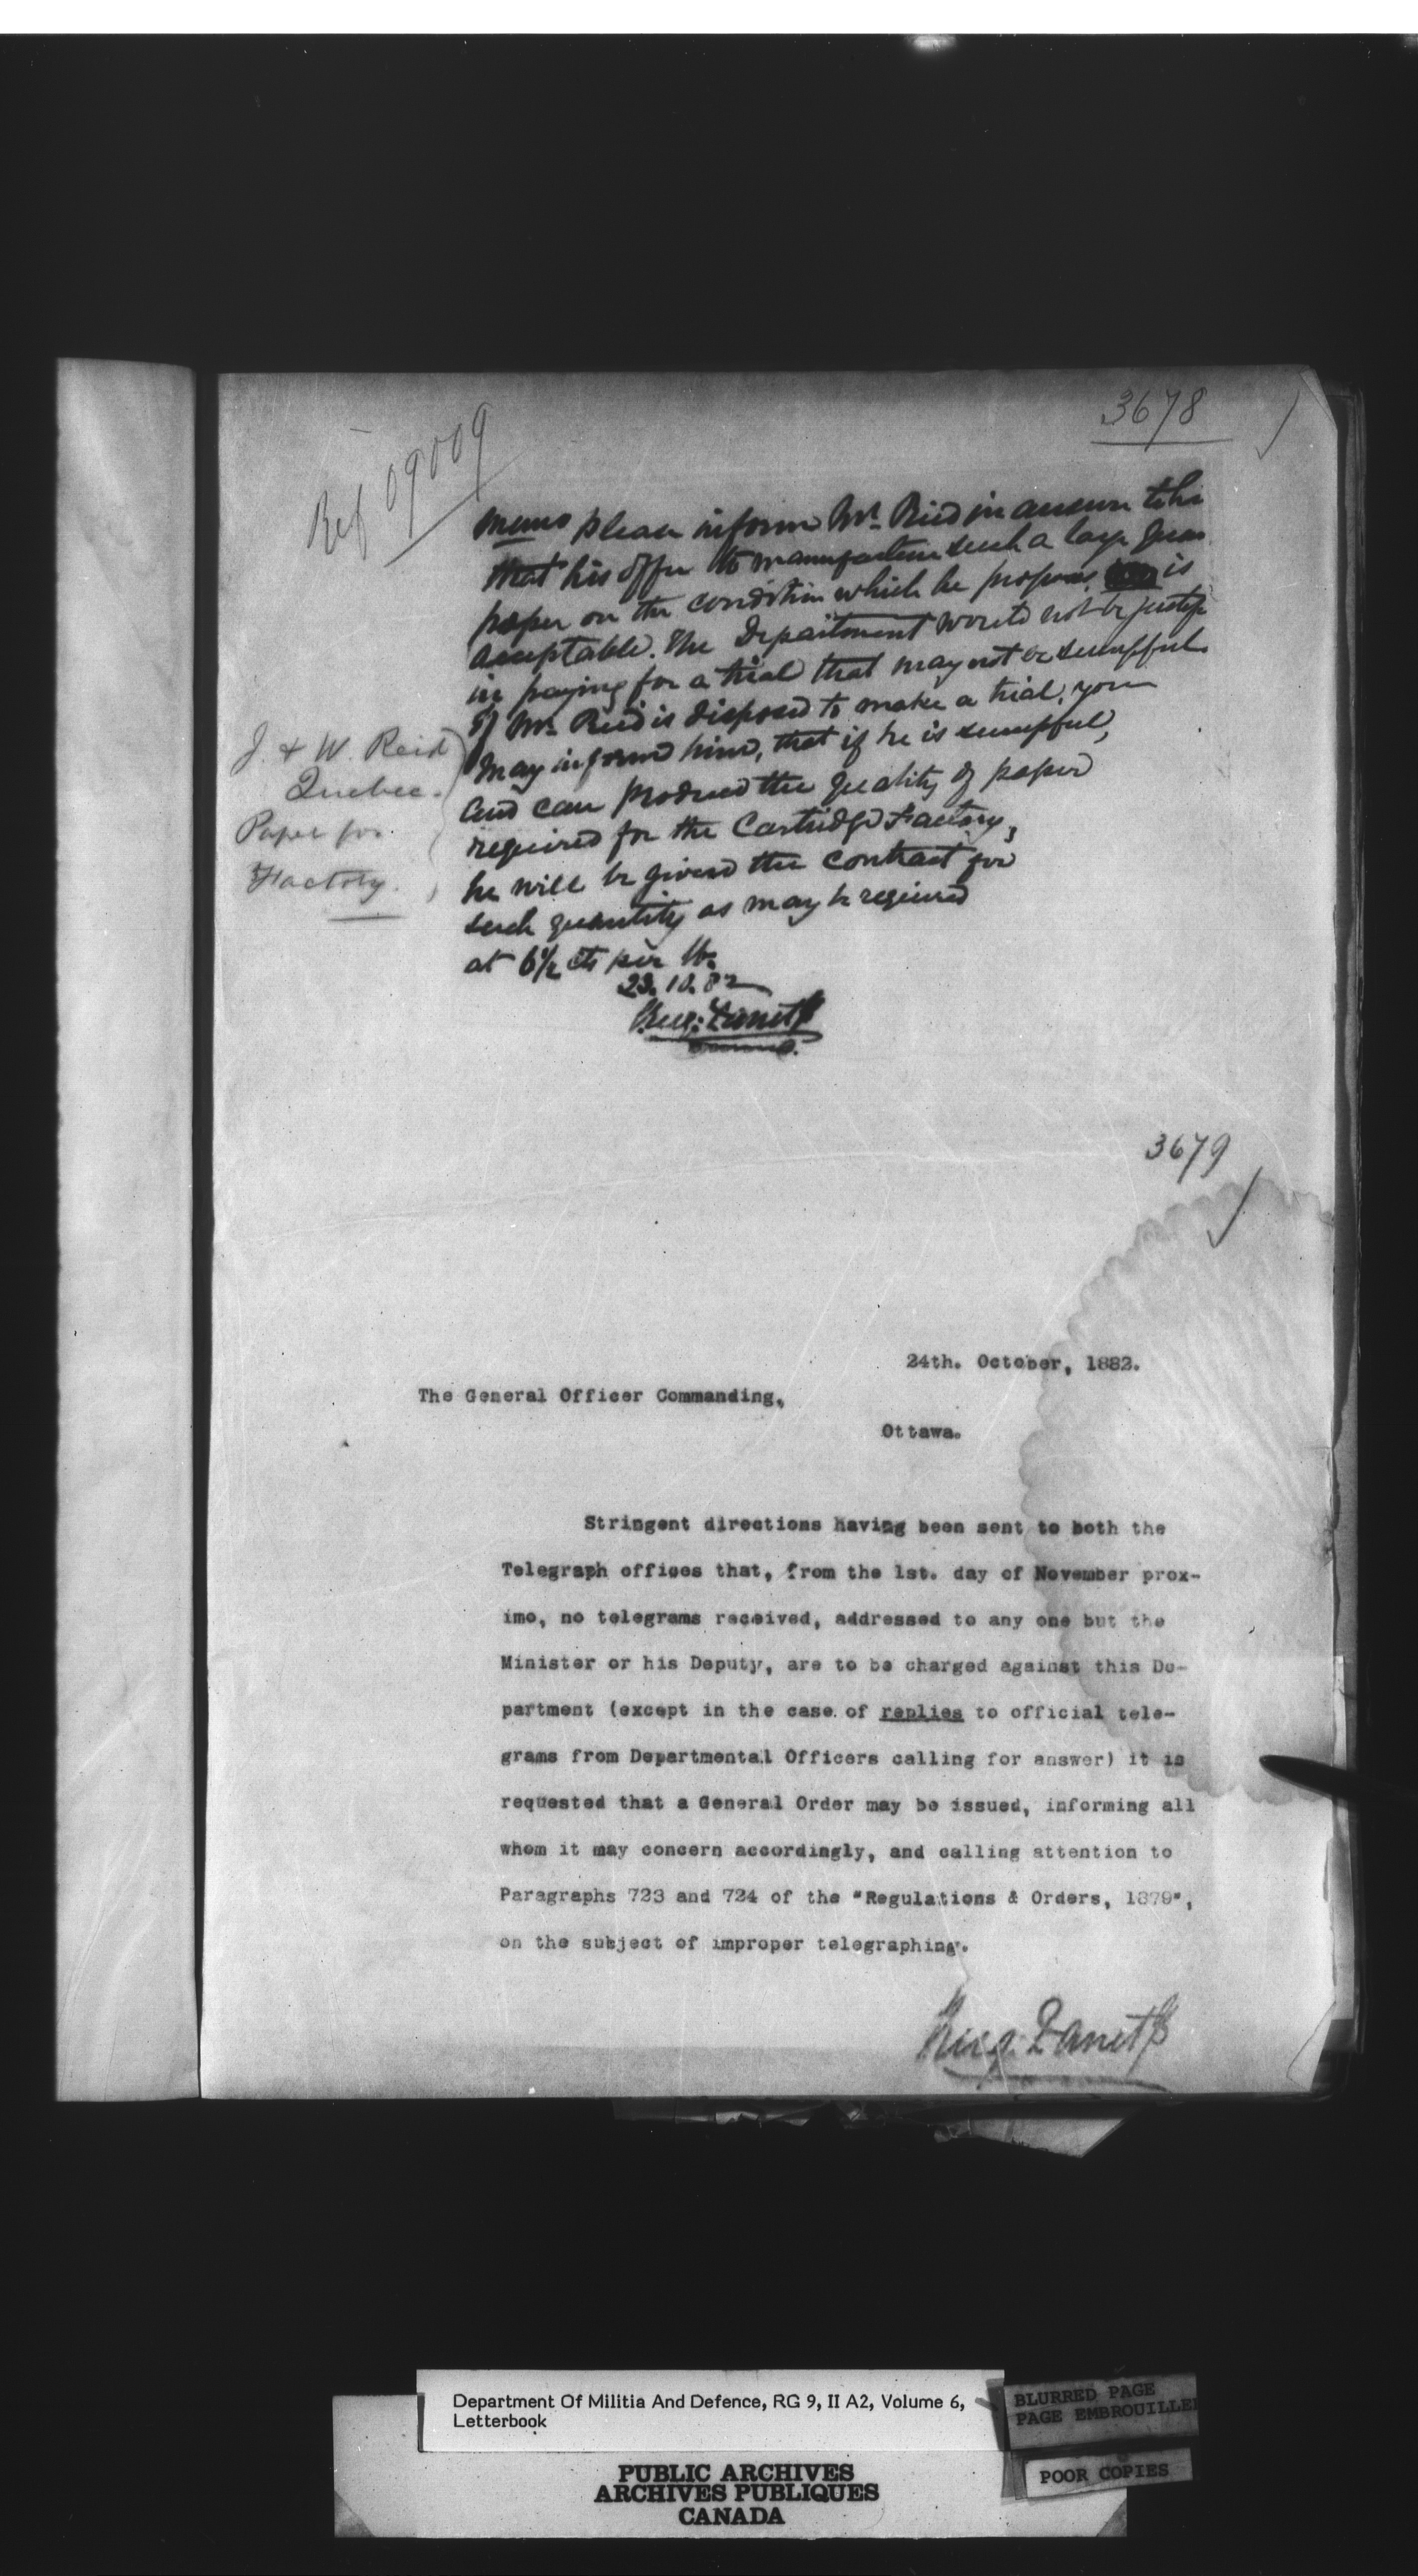 3678
Ref 09009
Memo please inform Mr. Reid in answer to his
that his offer to manufacture such a large quan
paper on the condition which he proposes is
acceptable. The Department would not be justifi
in paying for a trial that may not be successful.
If Mr. Reid is disposed to make a trial, you
may inform him, that if he is successful,
and can produce the quality of paper
required for the Cartridge Factory,
he will be given the contract for
such quantity as may be required
at 6½ cts per lb.
23.10.82
Eug. Panet
J. & W. Reid
Quebec.
Paper for
Factory.
3679
24th. October, 1882.
The General Officer Commanding,
Ottawa.
Stringent directions having been sent to both the
Telegraph offices that, from the 1st. day of November prox-
imo, no telegrams received, addressed to any one but the
Minister or his Deputy, are to be charged against this De-
partment (except in the case of replies to official tele-
grams from Departmental Officers calling for answer) it is
requested that a General Order may be issued, informing all
whom it may concern accordingly, and calling attention to
Paragraphs 723 and 724 of the "Regulations & Orders, 1879",
on the subject of improper telegraphing.
Eug. Panet
Department Of Militia And Defence, RG 9, II A2, Volume 6,
Letterbook
BLURRED PAGE
PAGE EMBROUILLEE
POOR COPIES
PUBLIC ARCHIVES
ARCHIVES PUBLIQUES
CANADA